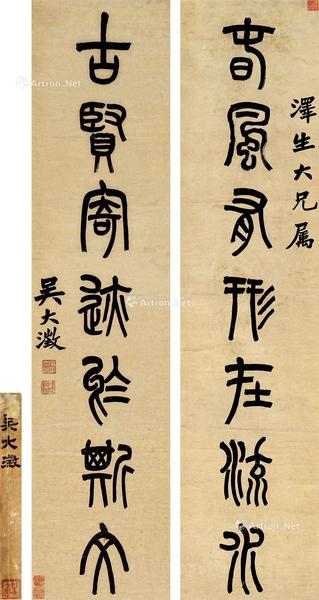 澤生大兄属
春風有形在流水
古賢寄迹於斯文
吳大澂
吳大澂
Artron.Net
Artron.Net
Artron.Net
Artron.Net